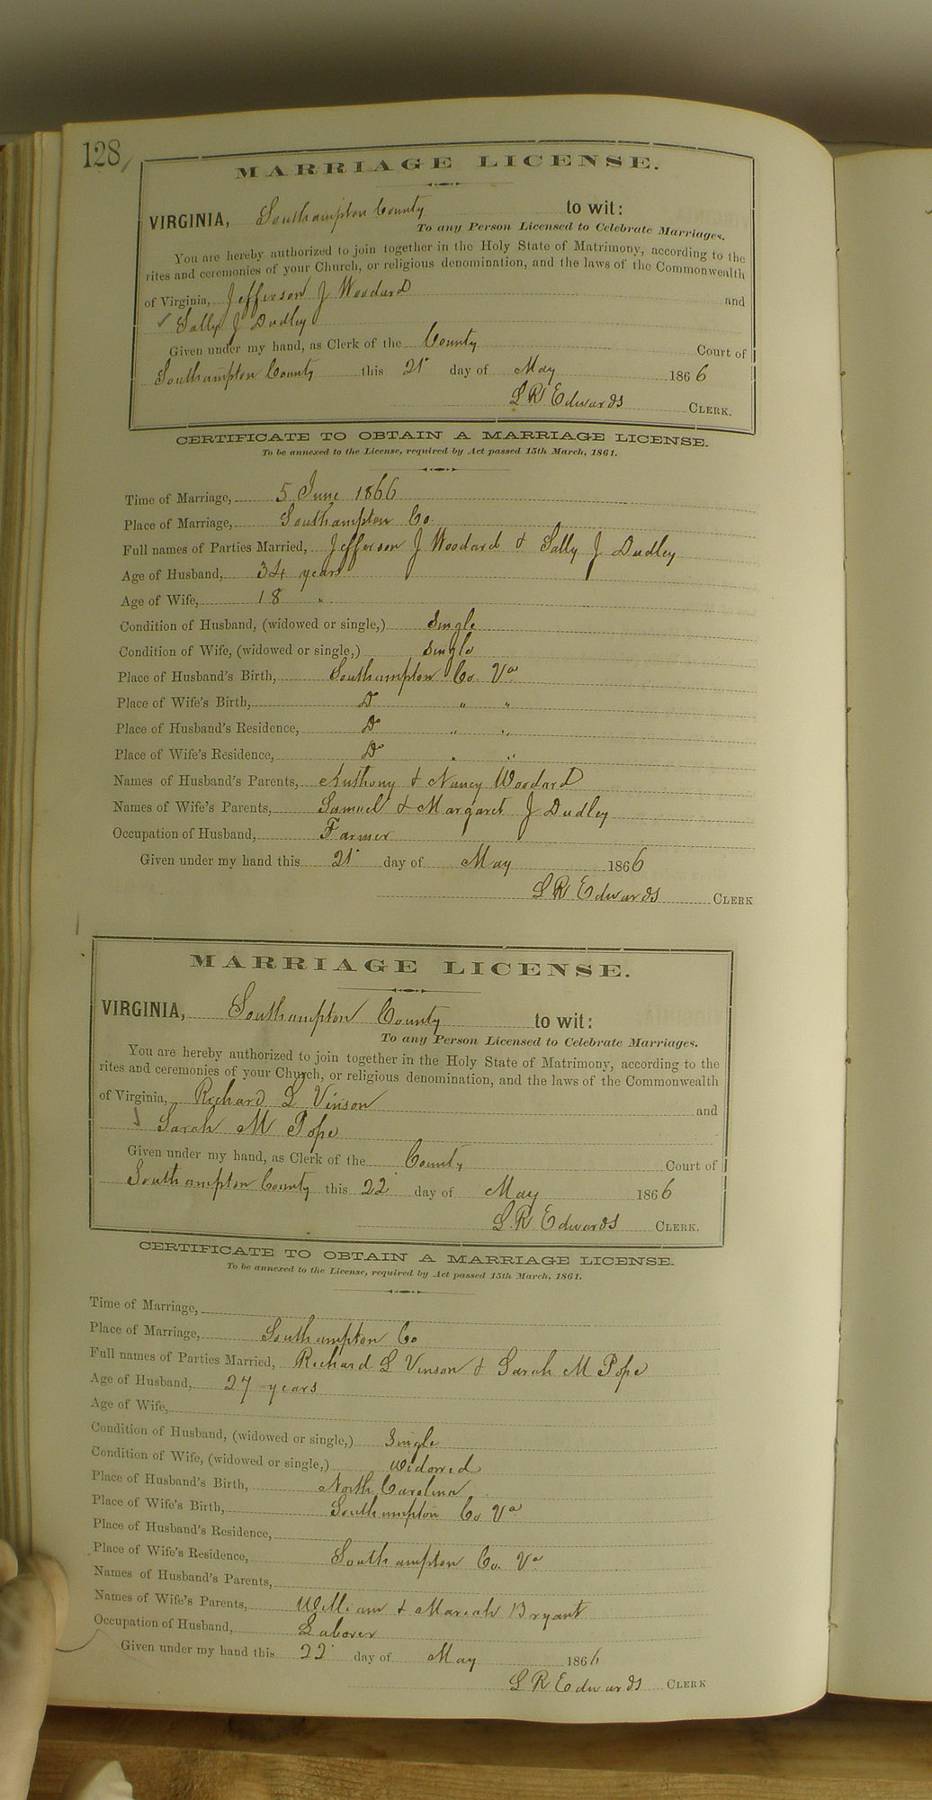 128
MARRIAGE LICENSE.
VIRGINIA, Southampton County to wit:
To any Person Licensed to Celebrate Marriages.
You are hereby authorized to join together in the Holy State of Matrimony, according to the
rites and ceremonies of your Church, or religious denomination, and the laws of the Commonwealth
of Virginia, Jefferson J Woodard and
Sally J Dudley
Given under my hand, as Clerk of the County Court of
Southampton County this 21 day of May 1866
L R Edwards CLERK.
CERTIFICATE TO OBTAIN A MARRIAGE LICENSE.
To be annexed to the License, required by Act passed 15th March, 1861.
Time of Marriage, 5 June 1866
Place of Marriage, Southampton Co
Full names of Parties Married, Jefferson J Woodard & Sally J Dudley
Age of Husband, 34 years
Age of Wife, 18 "
Condition of Husband, (widowed or single,) Single
Condition of Wife, (widowed or single,) single
Place of Husband's Birth, Southampton Co. Va
Place of Wife's Birth, Do " "
Place of Husband's Residence, Do " "
Place of Wife's Residence, Do " "
Names of Husband's Parents, Anthony & Nancy Woodard
Names of Wife's Parents, Samuel & Margaret J Dudley
Occupation of Husband, Farmer
Given under my hand this 21 day of May 1866
L R Edwards CLERK
MARRIAGE LICENSE.
VIRGINIA, Southampton County to wit:
To any Person Licensed to Celebrate Marriages.
You are hereby authorized to join together in the Holy State of Matrimony, according to the
rites and ceremonies of your Church, or religious denomination, and the laws of the Commonwealth
of Virginia, Richard L Vinson and
Sarah M Pope
Given under my hand, as Clerk of the County Court of
Southampton County this 22 day of May 1866
L R Edwards CLERK.
CERTIFICATE TO OBTAIN A MARRIAGE LICENSE.
To be annexed to the License, required by Act passed 15th March, 1861.
Time of Marriage,
Place of Marriage, Southampton Co
Full names of Parties Married, Richard L Vinson & Sarah M Pope
Age of Husband, 27 years
Age of Wife,
Condition of Husband, (widowed or single,) Single
Condition of Wife, (widowed or single,) Widowed
Place of Husband's Birth, North Carolina
Place of Wife's Birth, Southampton Co Va
Place of Husband's Residence,
Place of Wife's Residence, Southampton Co. Va
Names of Husband's Parents,
Names of Wife's Parents, William & Mariah Bryant
Occupation of Husband, Laborer
Given under my hand this 22 day of May 1866
L R Edwards CLERK